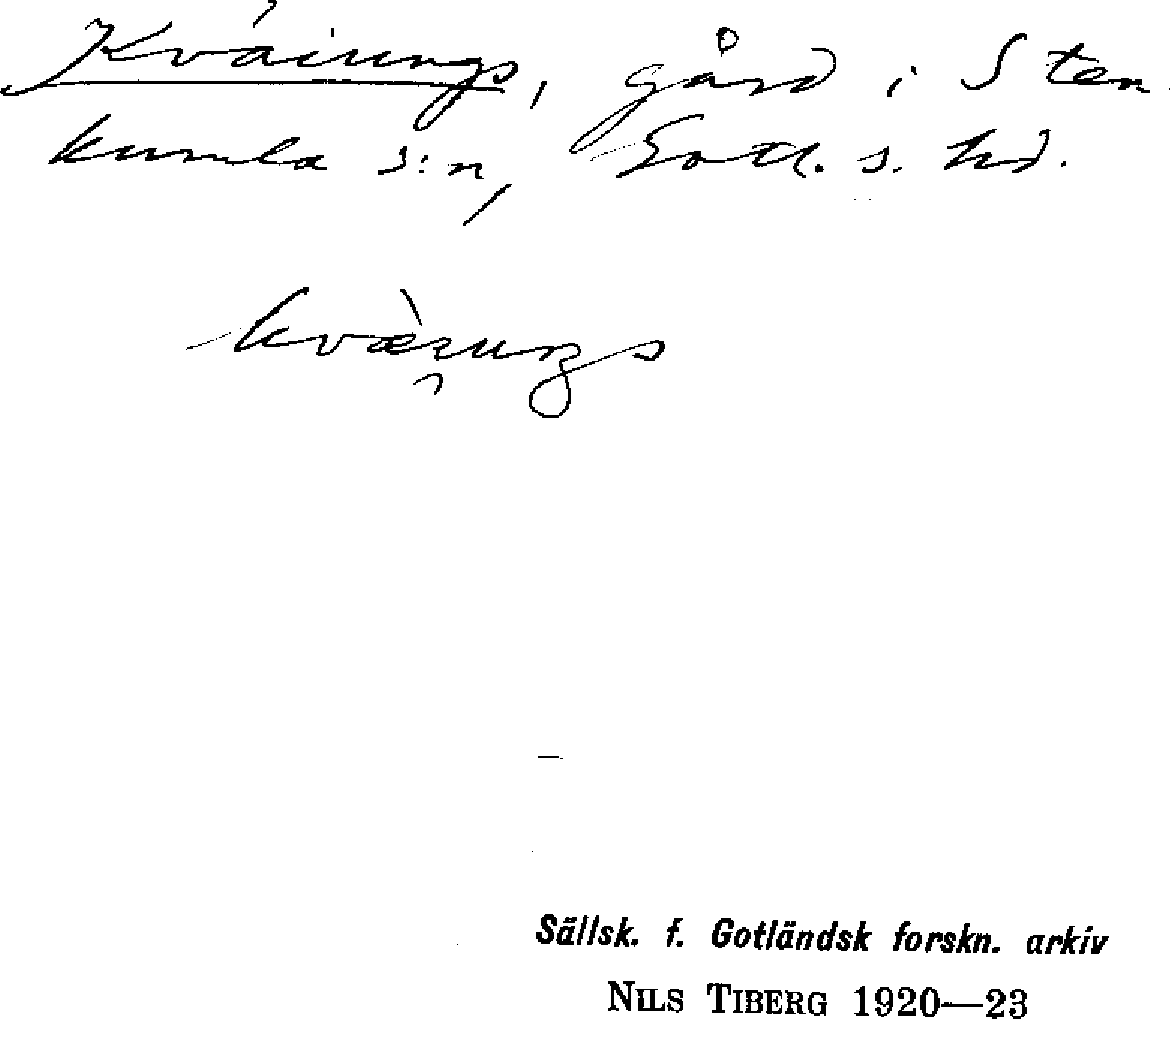 Kváiungs, gård i Sten-
kumla s:n, Gotl. s. hd.
kvæ̀i̯ungs
Sällsk. f. Gotländsk forskn. arkiv
NILS TIBERG 1920—23